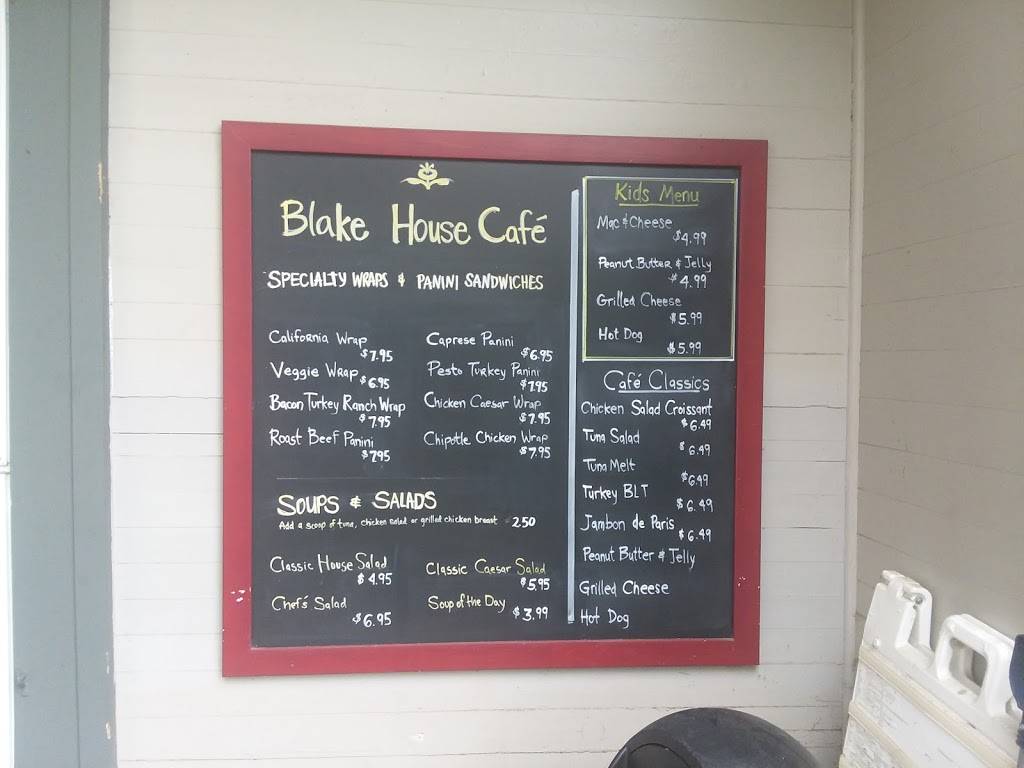 Blake House Café
SPECIALTY WRAPS & PANINI SANDWICHES
California Wrap
$7.95
Veggie Wrap $6.95
Bacon Turkey Ranch Wrap
$7.95
Roast Beef Panini
$7.95
Caprese Panini
$6.95
Pesto Turkey Panini
$7.95
Chicken Caesar Wrap
$7.95
Chipotle Chicken Wrap
$7.95
SOUPS & SALADS
Add a scoop of tuna, chicken salad or grilled chicken breast 2.50
Classic House Salad
$4.95
Chef's Salad
$6.95
Classic Caesar Salad
$5.95
Soup of the Day $3.99
Kids Menu
Mac & Cheese
$4.99
Peanut Butter & Jelly
$4.99
Grilled Cheese
$5.99
Hot Dog
$5.99
Café Classics
Chicken Salad Croissant
$6.49
Tuna Salad
$6.49
Tuna Melt
$6.49
Turkey BLT
$6.49
Jambon de Paris
$6.49
Peanut Butter & Jelly
Grilled Cheese
Hot Dog